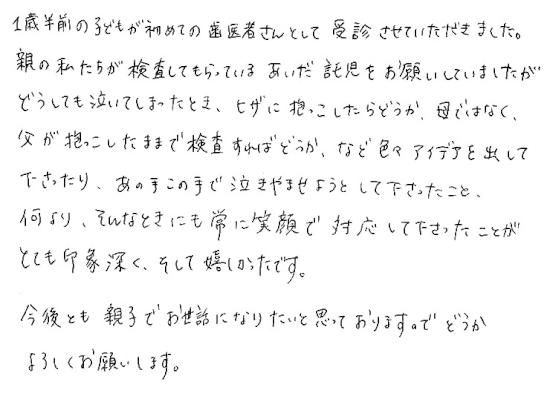 1歳半前の子どもが初めての歯医者さんとして受診させていただきました。
親の私たちが検査してもらっているあいだ託児をお願いしていましたが
どうしても泣いてしまったとき、ヒザに抱っこしたらどうか、母ではなく、
父が抱っこしたままで検査すればどうか、など色々アイデアを出して
下さったり、あの手この手で泣きやませようとして下さったこと、
何より、そんなときにも常に笑顔で対応して下さったことが
とても印象深く、そして嬉しかったです。
今後とも親子でお世話になりたいと思っておりますのでどうか
よろしくお願いします。